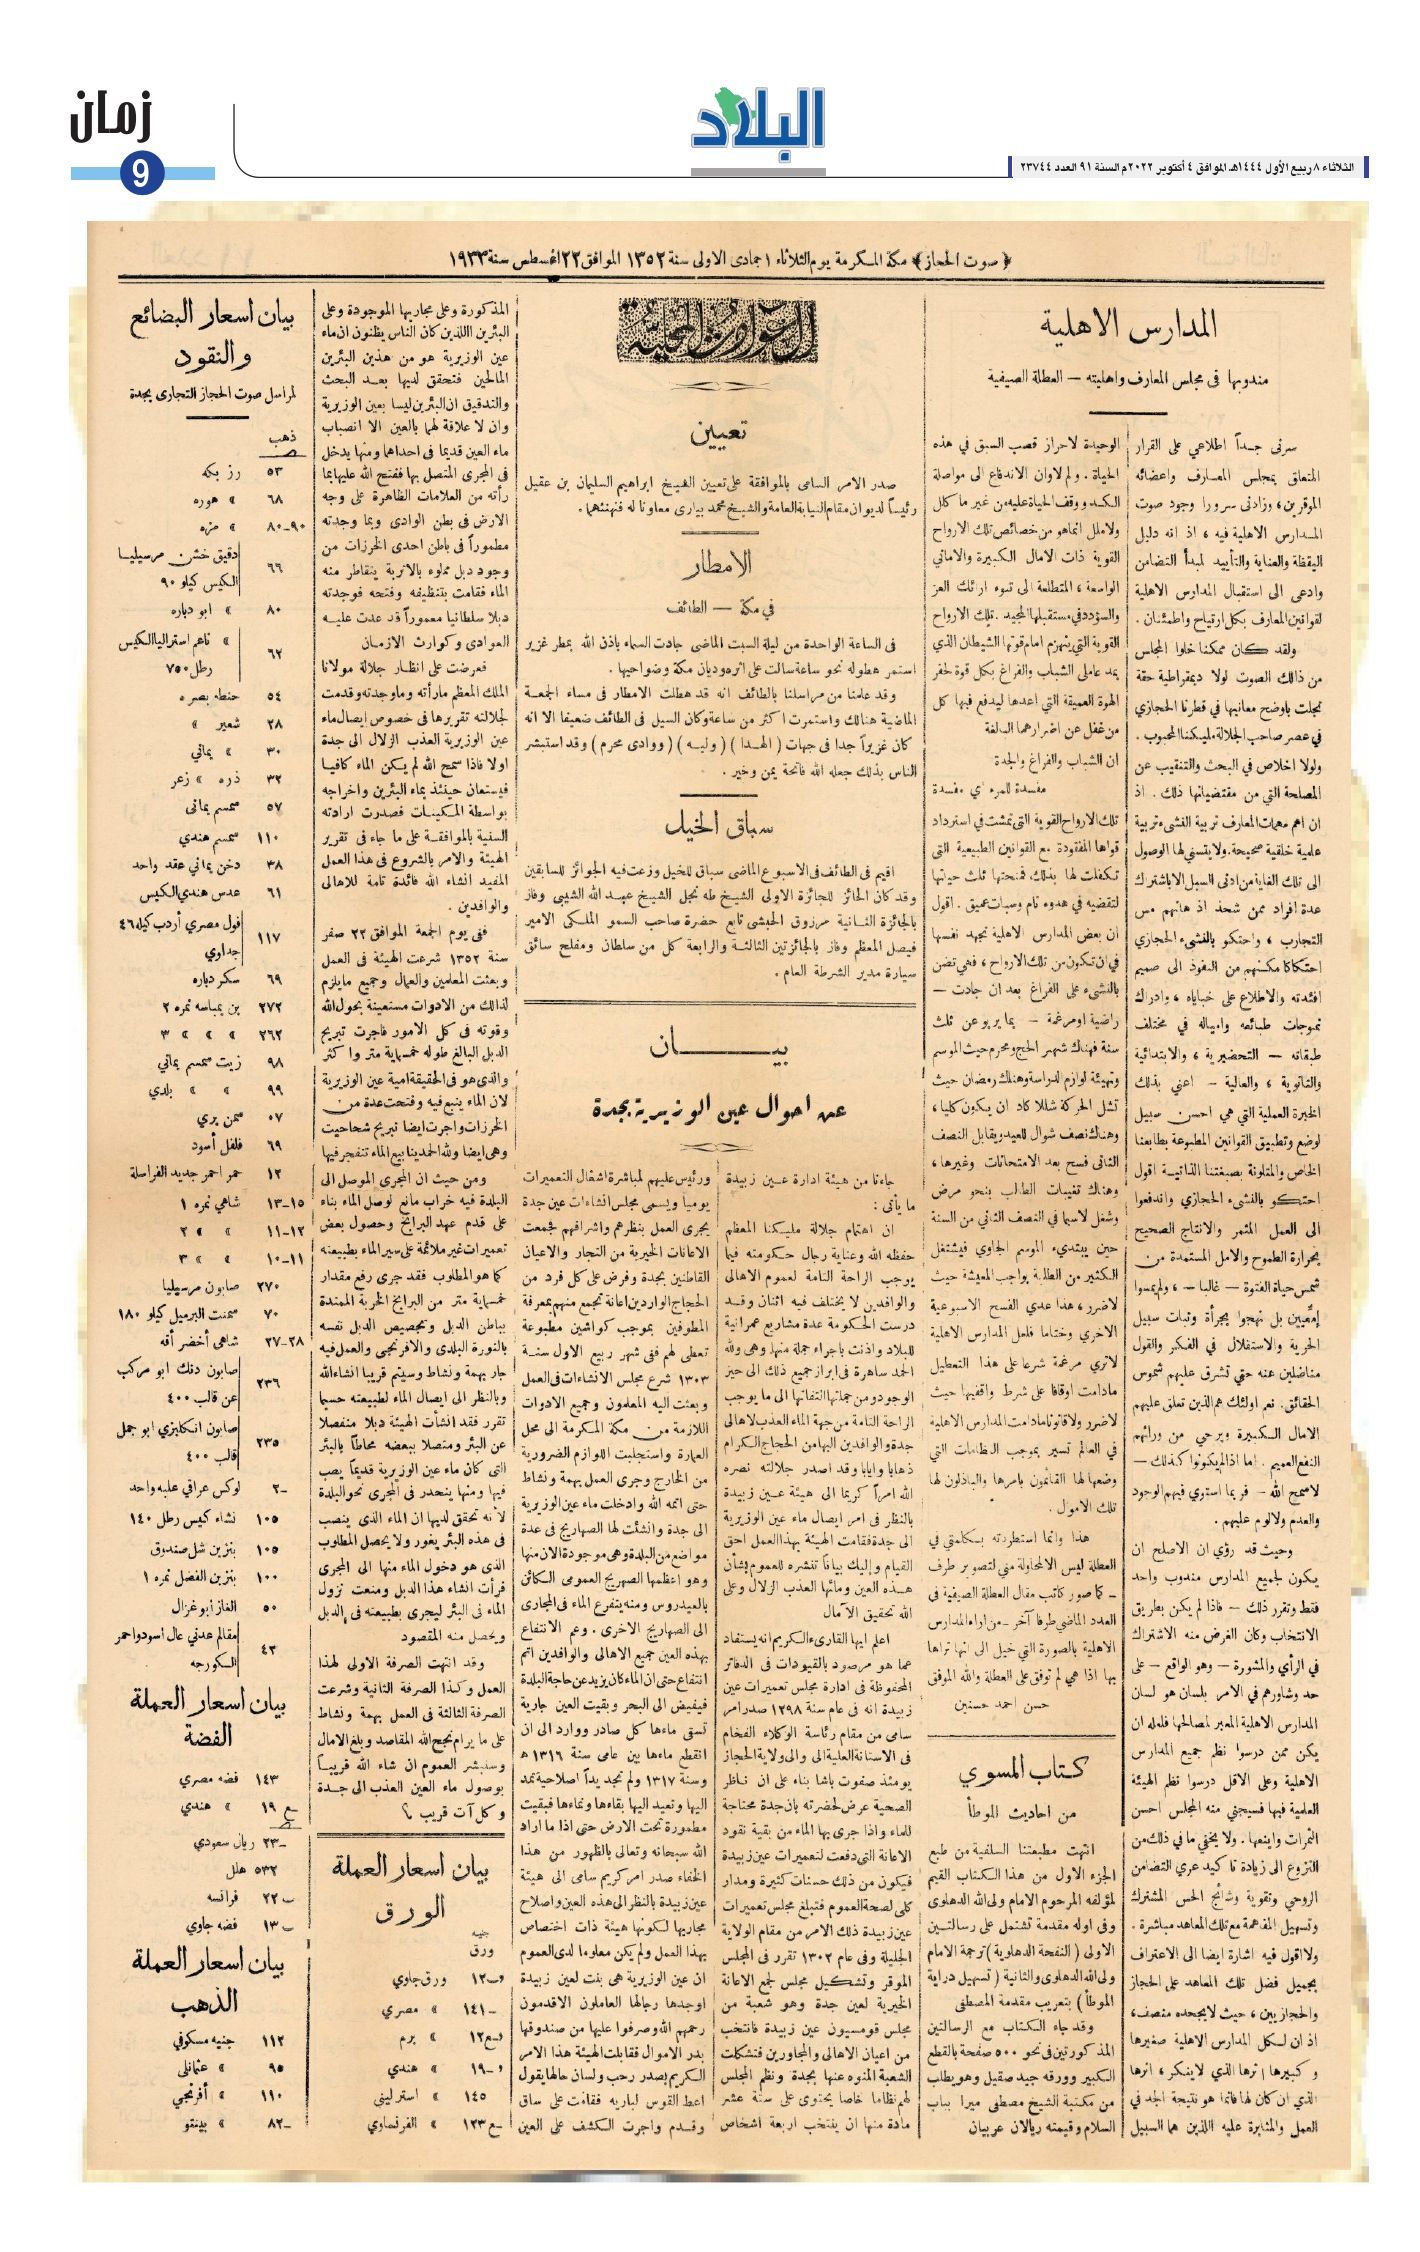 الثلاثاء ٨ ربيع الأول ١٤٤٤هـ الموافق ٤ أكتوبر ٢٠٢٢م السنة ٩١ العدد ٢٣٧٤٤
البلاد
زمان
9
﴿ صوت الحجاز ﴾ مكة المكرمة يوم الثلاثاء ١ جمادى الاولى سنة ١٣٥٢ الموافق ٢٢ اغسطس سنة ١٩٣٣
المدارس الاهلية
مندوبها فى مجلس المعارف واهليته – العطلة الصيفية
سرنى جداً اطلاعي على القرار
المتعلق بمجلس المعارف واعضائه
الموقرين، وزادنى سرورا وجود صوت
المدارس الاهلية فيه، اذ انه دليل
اليقظة والعناية والتأييد لمبدأ التضامن
وادعى الى استقبال المدارس الاهلية
لقوانين المعارف بكل ارتياح واطمئنان .
ولقد كان ممكنا خلوا المجلس
من ذالك الصوت لولا ديمقراطية حقة
تجلت باوضح معانيها في قطرنا الحجازي
في عصر صاحب الجلالة مليكنا المحبوب .
ولولا اخلاص في البحث والتنقيب عن
المصلحة التي من مقتضياتها ذلك . اذ
ان اهم مهمات المعارف تربية النشىء تربية
علمية خلقية صحيحة. ولا يتسنى لها الوصول
الى تلك الغاية من ادنى السبل الا باشتراك
عدة افراد ممن شحذ اذهانهم مس
التجارب، واحتكو بالنشىء الحجازي
احتكاكا مكنهم من النفوذ الى صميم
افئدته والاطلاع على خباياه، وادراك
تموجات طبائعه واميله في مختلف
طبقاته – التحضيرية، والابتدائية
والثانوية، والعالية – اعنى بذلك
الخبرة العملية التي هي احسن سبيل
لوضع وتطبيق القوانين المطبوعة بطابعنا
الخاص والمتلونة بصبغتنا الذاتية اقول
احتكو بالنشىء الحجازي واندفعوا
الى العمل المثمر والانتاج الصحيح
بحرارة الطموح والامل المستمدة من
شمس حياة الفتوة – غالبا –، ولم يمسوا
إمَّعيين بل نهجوا بجرأة وثبات سبيل
الحرية والاستقلال في الفكر والقول
مناضلين عنه حتى تشرق عليهم شموس
الحقائق. نعم اولئك هم الذين تعلق عليهم
الامال الكبيرة ويرجى من ورائهم
النفع العميم . اما اذا لم يكونوا كذلك –
لا سمح الله – فربما استوى فيهم الوجود
والعدم ولا لوم عليهم .
وحيث قد رؤي ان الاصلح ان
يكون لجميع المدارس مندوب واحد
فقط وتقرر ذلك – فاذا لم يكن بطريق
الانتخاب وكان الغرض منه الاشتراك
في الرأي والمشورة – وهو الواقع – على
حد وشاورهم في الامر بلسان هو لسان
المدارس الاهلية المعبر لمصالحها فلعله ان
يكن ممن درسوا نظم جميع المدارس
الاهلية وعلى الاقل درسوا نظم الهيئة
العلمية فيها فسيجنى منه المجلس احسن
الثمرات واينعها . ولا يخفى ما في ذلك من
النزوع الى زيادة تا كيد عري التضامن
الروحي وتقوية وشائج الحس المشترك
وتسهيل المفدمة مع تلك المعاهد مباشرة .
ولا اقول فيه اشارة ايضا الى الاعتراف
بجميل فضل تلك المعاهد على الحجاز
والحجازيين، حيث لا يجحده منصف،
اذ ان لكل المدارس الاهلية صغيرها
و كبيرها اثرها الذي لا ينكر، اثرها
الذي ان كان لها فانما هو نتيجة الجد في
العمل والمثابرة عليه اللذين هما السبيل
الوحيدة لاحراز قصب السبق في هذه
الحياة . ولم لا وان الاندفاع الى مواصلة
الكد ووقف الحياة عليه من غير ما كلل
ولا ملل انما هو من خصائص تلك الارواح
القوية ذات الامال الكبيرة والاماني
الواسعة، المتطلعة الى تبوء ارائك العز
والسؤدد في مستقبلها المجيد . تلك الارواح
القوية التي ينهزم امام قوتها الشيطان الذي
يمد عاملى الشباب والفراغ بكل قوة لحفر
الهوة العميقة التي اعدها ليدفع فيها كل
من غفل عن اضرارهما السالفة
ان الشباب والفراغ والجدة
مفسدة للمرء اي مفسدة
تلك الارواح القوية التى تمشت في استرداد
قواها المفقودة مع القوانين الطبيعية التى
تكفلت لها بذلك، فمنحتها ثلث حياتها
لتقضيه في هدوء تام وسبات عميق . اقول
ان بعض المدارس الاهلية تجهد نفسها
في ان تكون من تلك الارواح، فهى تضن
بالنشىء على الفراغ بعد ان جادت –
راضية او مرغمة – بما يربو عن ثلث
سنة فهناك شهر الحج ومحرم حيث الموسم
وتهيئة لوازم الدراسة وهنالك رمضان حيث
تشل الحركة شللا كاد ان يكون كليا،
وهناك نصف شوال للعيد ويقابل النصف
الثانى فسح بعد الامتحانات وغيرها،
وهناك تغيبات الطلاب بنحو مرض
وشغل لاسيما في النصف الثاني من السنة
حين يبتدىء الموسم الجاوي فيشتغل
الكثير من الطلبة بواجب المعيشة حيث
لا ضرر، هذا عدي الفسح الاسبوعية
الاخري وختاما فلعل المدارس الاهلية
لا تري مرغمة شرعا على هذا التعطيل
مادامت اوقافا على شرط واقفيها حيث
لا ضرر ولا قانونا مادامت المدارس الاهلية
في العالم تسير بموجب النظامات التي
وضعها لها القائمون بامرها والباذلون لها
تلك الاموال .
هذا وانما استطردته بكلمتي في
العطلة ليس الا محاولة مني لتصوير طرف
– كما صور كاتب مقال العطلة الصيفية في
العدد الماضي طرفا آخر – من اراء المدارس
الاهلية بالصورة التي خيل الى انها تراها
بها اذا هي لم توفق على العطلة والله الموفق
حسن احمد حسنين
كتاب المسوي
من احاديث الموطأ
انتهت مطبعتنا السلفية من طبع
الجزء الاول من هذا الكتاب القيم
لمؤلفه المرحوم الامام ولى الله الدهلوى
وفى اوله مقدمة تشتمل على رسالتين
الاولى ( النفحة الدهلوية ) ترجمة الامام
ولى الله الدهلوى والثانية ( تسهيل دراية
الموطأ ) بتعريب مقدمة المصطفى
وقد جاء الكتاب مع الرسالتين
المذكورتين فى نحو ٥٠٠ صفحة بالقطع
الكبير وورقه جيد صقيل وهو يطلب
من مكتبة الشيخ مصطفى ميرا بباب
السلام وقيمته ريالان عربيان
الحوادث المحلية
تعيين
صدر الامر السامى بالموافقة على تعيين الشيخ ابراهيم السليمان بن عقيل
رئيساً لديوان مقام النيابة العامة والشيخ محمد بيارى معاونا له فنهنئهما .
الامطار
في مكة – الطائف
فى الساعة الواحدة من ليلة السبت الماضى جادت السماء باذن الله بمطر غزير
استمر هطوله نحو ساعة سالت على اثره وديان مكة وضواحيها .
وقد علمنا من مراسلنا بالطائف انه قد هطلت الامطار فى مساء الجمعة
الماضية هنالك واستمرت اكثر من ساعة وكان السيل فى الطائف ضعيفا الا انه
كان غزيراً جدا فى جهات ( الهدا ) ( وليه ) ( ووادى محرم ) وقد استبشر
الناس بذلك جعله الله فاتحة يمن وخير .
سباق الخيل
اقيم فى الطائف فى الاسبوع الماضى سباق للخيل وزعت فيه الجوائز للسابقين
وقد كان الحائز للجائزة الاولى الشيخ طه نجل الشيخ عبد الله الشيبى وفاز
بالجائزة الثانية مرزوق الحبشى تابع حضرة صاحب السمو الملكى الامير
فيصل المعظم وفاز بالجائزتين الثالثة والرابعة كل من سلطان ومفلح سائق
سيارة مدير الشرطة العام .
بيـــان
عن احوال عين الوزيرية بجدة
جاءنا من هيئة ادارة عين زبيدة
ما يأتى :
ان اهتمام جلالة مليكنا المعظم
حفظه الله وعناية رجال حكومته فيما
يوجب الراحة التامة لعموم الاهالى
والوافدين لا يختلف فيه اثنان وقد
درست الحكومة عدة مشاريع عمرانية
للبلاد واذنت باجراء جملة منها وهى ولله
الحمد ساهرة فى ابراز جميع ذلك الى حيز
الوجود ومن جملتها التفاتها الى ما يوجب
الراحة التامة من جهة الماء العذب لاهالى
جدة والوافدين اليها من الحجاج الكرام
ذهابا وايابا وقد اصدر جلالته نصره
الله امراً كريما الى هيئة عين زبيدة
بالنظر فى امر ايصال ماء عين الوزيرية
الى جدة فقامت الهيئة بهذا العمل احق
القيام وإليك بياناً تنشره للعموم بشأن
هذه العين ومائها العذب الزلال وعلى
الله تحقيق الآمال
اعلم ايها القارىء الكريم انه يستفاد
عما هو مرصود بالقيودات فى الدفاتر
المحفوظة فى ادارة مجلس تعميرات عين
زبيدة انه فى عام سنة ١٢٩٨ صدر امر
سامى من مقام رئاسة الوكلاء الفخام
فى الاستانة العلية الى والى ولاية الحجاز
يومئذ صفوت باشا بناء على ان ناظر
الصحية عرض لحضرته بان جدة محتاجة
للماء واذا جرى بها الماء من بقية نقود
الاعانة التى دفعت لتعميرات عين زبيدة
فيكون من ذلك حسنات كثيرة ومدار
كلى لصحة العموم فتبلغ مجلس تعميرات
عين زبيدة ذلك الامر من مقام الولاية
الجليلة وفى عام ١٣٠٢ تقرر فى المجلس
الموقر وتشكيل مجلس لجمع الاعانة
الخيرية لعين جدة وهو شعبة من
مجلس قومسيون عين زبيدة فانتخب
من اعيان الاهالى والمجاورين فتشكلت
الشعبة المنوه عنها بجدة ونظم المجلس
لهم نظاما خاصا يحتوى على سنة عشر
مادة منها ان ينتخب اربعة اشخاص
ورئيس عليهم لمباشرة اشغال التعميرات
يومياً ويسمى مجلس انشاءات عين جدة
يجرى العمل بنظرهم واشرافهم فجمعت
الاعانات الخيرية من التجار والاعيان
القاطنين بجدة وفرض على كل فرد من
الحجاج الواردين اعانة تجمع منهم بمعرفة
المطوفين بموجب كواشين مطبوعة
تعطى لهم ففى شهر ربيع الاول سنة
١٣٠٣ شرع مجلس الانشاءات فى العمل
وبعثت اليه المعلمون وجميع الادوات
اللازمة من مكة المكرمة الى محل
العمارة واستجلبت اللوازم الضرورية
من الخارج وجرى العمل بهمة ونشاط
حتى اتمه الله وادخلت ماء عين الوزيرية
الى جدة وانشئت لها الصهاريج فى عدة
مواضع من البلدة وهى موجودة الان منها
وهو اعظمها الصهريج العمومى الكائن
بالعيدروس ومنه يتفرع الماء فى المجارى
الى الصهاريج الاخرى . وعم الانتفاع
بهذه العين جميع الاهالى والوافدين اتم
انتفاع حتى ان الماء كان يزيد عن حاجة البلدة
فيفيض الى البحر وبقيت العين جارية
تسقى ماءها كل صادر ووارد الى ان
انقطع ماءها بين عامى سنة ١٣١٦ ه
وسنة ١٣١٧ ولم تجد يداً اصلاحية تمد
اليها وتعيد اليها بقاءها ونماءها فبقيت
مطمورة تحت الارض حتى اذا ما اراد
الله سبحانه وتعالى بالظهور من هذا
الخفاء صدر امر كريم سامى الى هيئة
عين زبيدة بالنظر الى هذه العين واصلاح
مجاريها لكونها هيئة ذات اختصاص
بهذا العمل ولم يكن معلوما لدى العموم
ان عين الوزيرية هى بنت لعين زبيدة
اوجدها رجالها العاملون الاقدمون
رحمهم الله وصرفوا عليها من صندوقها
بدر الاموال فقابلت الهيئة هذا الامر
الكريم بصدر رحب ولسان حالها يقول
اعط القوس لباريه فقامت على ساق
وقدم واجرت الكشف على العين
المذكورة وعلى مجاريها الموجودة وعلى
البئرين اللذين كان الناس يظنون ان ماء
عين الوزيرية هو من هذين البئرين
المالحين فتحقق لديها بعد البحث
والتدقيق ان البئرين ليسا بعين الوزيرية
وان لا علاقة لهما بالعين الا انصباب
ماء العين قديما فى احداهما ومنها يدخل
فى المجرى المتصل بها ففتح الله عليها بما
رأته من العلامات الظاهرة على وجه
الارض فى بطن الوادى وبما وجدته
مطموراً فى باطن احدى الخرزات من
وجود دبل مملوء بالاتربة يتقاطر منه
الماء فقامت بتنظيفه وفتحه فوجدته
دبلا سلطانيا معموراً قد عدت عليه
العوادى وكوارث الازمان
فعرضت على انظار جلالة مولانا
الملك المعظم ما رأته وما وجدته وقدمت
لجلالته تقريرها فى خصوص ايصال ماء
عين الوزيرية العذب الزلال الى جدة
اولا فاذا سمح الله لم يكن الماء كافيا
فيستعان حينئذ بماء البئرين واخراجه
بواسطة المكينات فصدرت ارادته
السنية بالموافقة على ما جاء فى تقرير
الهيئة والامر بالشروع فى هذا العمل
المفيد انشاء الله فائدة تامة للاهالى
والوافدين .
ففى يوم الجمعة الموافق ٢٢ صفر
سنة ١٣٥٢ شرعت الهيئة فى العمل
وبعثت المعلمين والعمال وجميع مايلزم
لذالك من الادوات مستعينة بحول الله
وقوته فى كل الامور فاجرت تبريح
الدبل البالغ طوله خمسماية متر واكثر
والذى هو فى الحقيقة امية عين الوزيرية
لان الماء ينبع فيه وفتحت عدة من
الخرزات واجرت ايضا تبريح شحاحيت
وهى ايضا ولله الحمد ينابيع الماء تنفجر فيها
ومن حيث ان المجرى الموصل الى
البلدة فيه خراب مانع لوصل الماء بناء
على قدم عهد البرابخ وحصول بعض
تعميرات غير ملائمة على سير الماء بطبيعته
كما هو المطلوب فقد جرى رفع مقدار
خمسماية متر من البرابخ الخربة الممتدة
بباطن الدبل وتجصيص الدبل نفسه
بالنورة البلدى والافرنجى والعمل فيه
جار بهمة ونشاط وسيتم قريبا انشاء الله
وبالنظر الى ايصال الماء لطبيعته حسبما
تقرر فقد انشأت الهيئة دبلا منفصلا
عن البئر ومتصلا ببعضه محاطاً بالبئر
التى كان ماء عين الوزيرية قديماً يصب
فيها ومنها ينحدر فى المجرى نحو البلدة
لأنه تحقق لديها ان الماء الذى ينصب
فى هذه البئر يغور ولا يحصل المطلوب
الذى هو دخول الماء منها الى المجرى
فرأت انشاء هذا الدبل ومنعت نزول
الماء فى البئر ليجرى بطبيعته فى الدبل
ويحصل منه المقصود
وقد انتهت الصرفة الاولى لهذا
العمل وكذا الصرفة الثانية وشرعت
الصرفة الثالثة فى العمل بهمة ونشاط
على ما يرام نجح الله المقاصد وبلغ الامال
وسنبشر العموم ان شاء الله قريباً
بوصول ماء العين العذب الى جدة
وكل آت قريب
بيان اسعار العملة
الورق
جنيه
ورق
ورق جاوي
١٤١– » مصري
» برم
١٩– » هندي
١٤٥ » استرليني
١٢٣ » الفرنساوي
بيان اسعار البضائع
والنقود
لمراسل صوت الحجاز التجارى بجدة
ذهب
٥٣ رز بكه
٦٨ » هوره
٨٠–٩٠ » مزه
٦٦ دقيق خشن مرسيليا
الكيس كيلو ٩٠
٨٠ » ابو دباره
٦٢ » ناعم استراليا الكيس
رطل ٧٥٠
٥٤ حنطه بصره
٢٨ شعير »
٣٠ » يماني
٣٢ ذره » زعر
٥٧ سمسم يمانى
١١٠ سمسم هندي
٣٨ دخن يماني عقد واحد
٦١ عدس هندي الكيس
١١٧ فول مصري أردب كيله ٤٦
جداوي
٦٩ سكر دباره
٢٧٢ بن يمباسه نمره ٢
٢٦٢ » » » ٣
٩٨ زيت سمسم يماني
٩٩ » » بلدي
٠٧ سمن بري
٦٩ فلفل أسود
١٢ حمر احمر جديد الفراسلة
١٣–١٥ شاهي نمره ١
١١–١٢ » » ٢
١٠–١١ » » ٣
٢٧٠ صابون مرسيليا
٧٠ سمنت البرميل كيلو ١٨٠
٢٧–٢٨ شاهى أخضر أقه
٢٣٦ صابون دنك ابو مركب
عن قالب ٤٠٠
٢٣٥ صابون انكليزي ابو جمل
قالب ٤٠٠
٢– لوكس عراقي علبه واحد
١٠٥ نشاء كيس رطل ١٤٠
١٠٥ بنزين شل صندوق
١٠٠ بنزين الفضل نمره ١
٥٠ الغاز أبو غزال
٤٣ مقالم عدني عال أسود واحمر
الكورجه
بيان اسعار العملة
الفضة
١٤٣ فضه مصري
١٩ » هندي
٢٣– ريال سعودي
٥٣٢ هلل
٢٢ فرانسه
١٣ فضه جاوي
بيان اسعار العملة
الذهب
١١٢ جنيه مسكوفي
٩٥ » عثمانلى
١١٠ » أفرنجي
٨٢– » بينتو